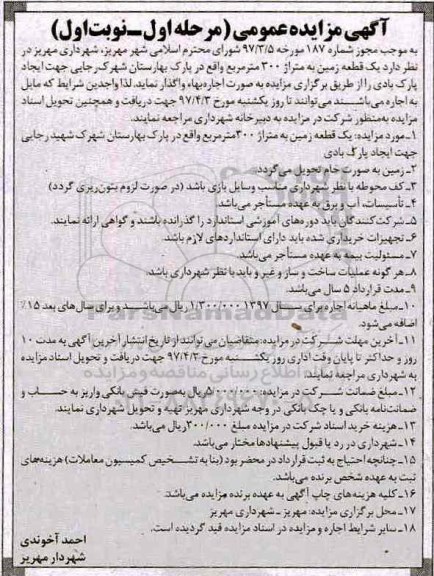 آگهی مزایده عمومی (مرحله اول ــ نوبت اول)
به موجب مجوز شماره ۱۸۷ مورخه ۹۷/۳/۵ شورای محترم اسلامی شهر مهریز، شهرداری مهریز در
نظر دارد یک قطعه زمین به متراژ ۳۰۰ مترمربع واقع در پارک بهارستان شهرک رجایی جهت ایجاد
پارک بادی را از طریق برگزاری مزایده به صورت اجاره‌بهاء واگذار نماید. لذا واجدین شرایط که مایل
به اجاره می‌باشند می‌توانند تا روز یکشنبه مورخ ۹۷/۴/۳ جهت دریافت و همچنین تحویل اسناد
مزایده به‌منظور شرکت در مزایده به دبیرخانه شهرداری مراجعه نمایند.
۱ـ مورد مزایده: یک قطعه زمین به متراژ ۳۰۰ مترمربع واقع در پارک بهارستان شهرک شهید رجایی
جهت ایجاد پارک بادی
۲ـ زمین به صورت خام تحویل می‌گردد.
۳ـ کف محوطه با نظر شهرداری مناسب وسایل بازی باشد (در صورت لزوم بتون‌ریزی گردد)
۴ـ تأسیسات، آب و برق به عهده مستأجر می‌باشد.
۵ـ شرکت‌کنندگان باید دوره‌های آموزشی استاندارد را گذرانده باشند و گواهی ارائه نمایند.
۶ـ تجهیزات خریداری شده باید دارای استانداردهای لازم باشد.
۷ـ مسئولیت بیمه به عهده مستأجر می‌باشد.
۸ـ هر گونه عملیات ساخت و ساز و غیر و باید با نظر شهرداری باشد.
۹ـ مدت قرارداد ۵ سال می‌باشد.
۱۰ـ مبلغ ماهیانه اجاره برای سال ۱۳۹۷ ۱/۳۰۰/۰۰۰ ریال می‌باشد و برای سال‌های بعد ۱۵٪
اضافه می‌شود.
۱۱ـ آخرین مهلت شرکت در مزایده: متقاضیان می‌توانند از تاریخ انتشار آخرین آگهی به مدت ۱۰
روز و حداکثر تا پایان وقت اداری روز یکشنبه مورخ ۹۷/۴/۳ جهت دریافت و تحویل اسناد مزایده
به شهرداری مراجعه نمایند.
۱۲ـ مبلغ ضمانت شرکت در مزایده: ریال به‌صورت فیش بانکی واریز به حساب و
ضمانت‌نامه بانکی و یا چک بانکی در وجه شهرداری مهریز تهیه و تحویل شهرداری نمایند.
۱۳ـ هزینه خرید اسناد شرکت در مزایده مبلغ ۳۰۰/۰۰۰ ریال می‌باشد.
۱۴ـ شهرداری در رد یا قبول پیشنهادها مختار می‌باشد.
۱۵ـ چنانچه احتیاج به ثبت قرارداد در محضر بود (بنا به تشخیص کمیسیون معاملات) هزینه‌های
ثبت به عهده شخص برنده می‌باشد.
۱۶ـ کلیه هزینه‌های چاپ آگهی به عهده برنده مزایده می‌باشد.
۱۷ـ محل برگزاری مزایده: مهریز ـ شهرداری مهریز
۱۸ـ سایر شرایط اجاره و مزایده در اسناد مزایده قید گردیده است.
احمد آخوندی
شهردار مهریز